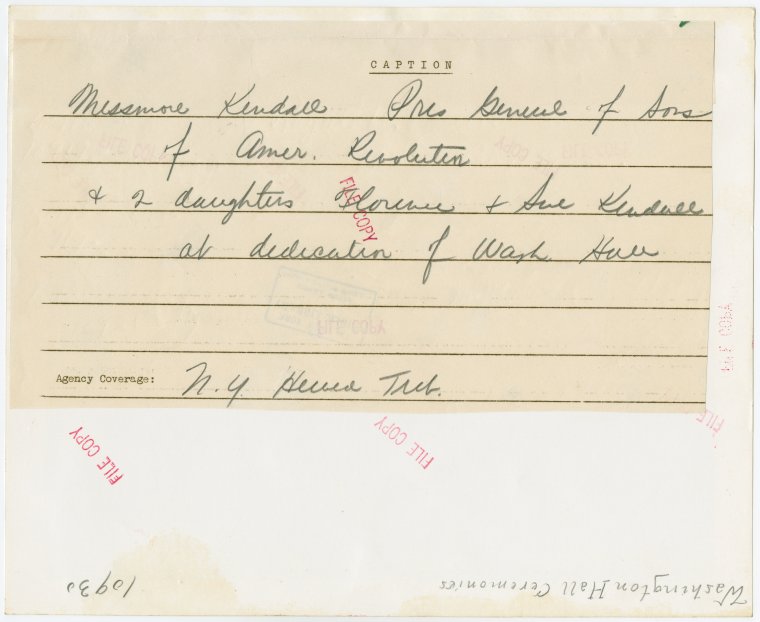 CAPTION
Messmore Kendall Pres General of Sons
of Amer. Revolution
& 2 daughters Florence & Sue Kendall
at dedication of Wash Hall
FILE COPY
FILE COPY
Agency Coverage: N.Y. Herald Trib.
FILE COPY
FILE COPY
FILE COPY
FILE
Washington Hall Ceremonies
10930